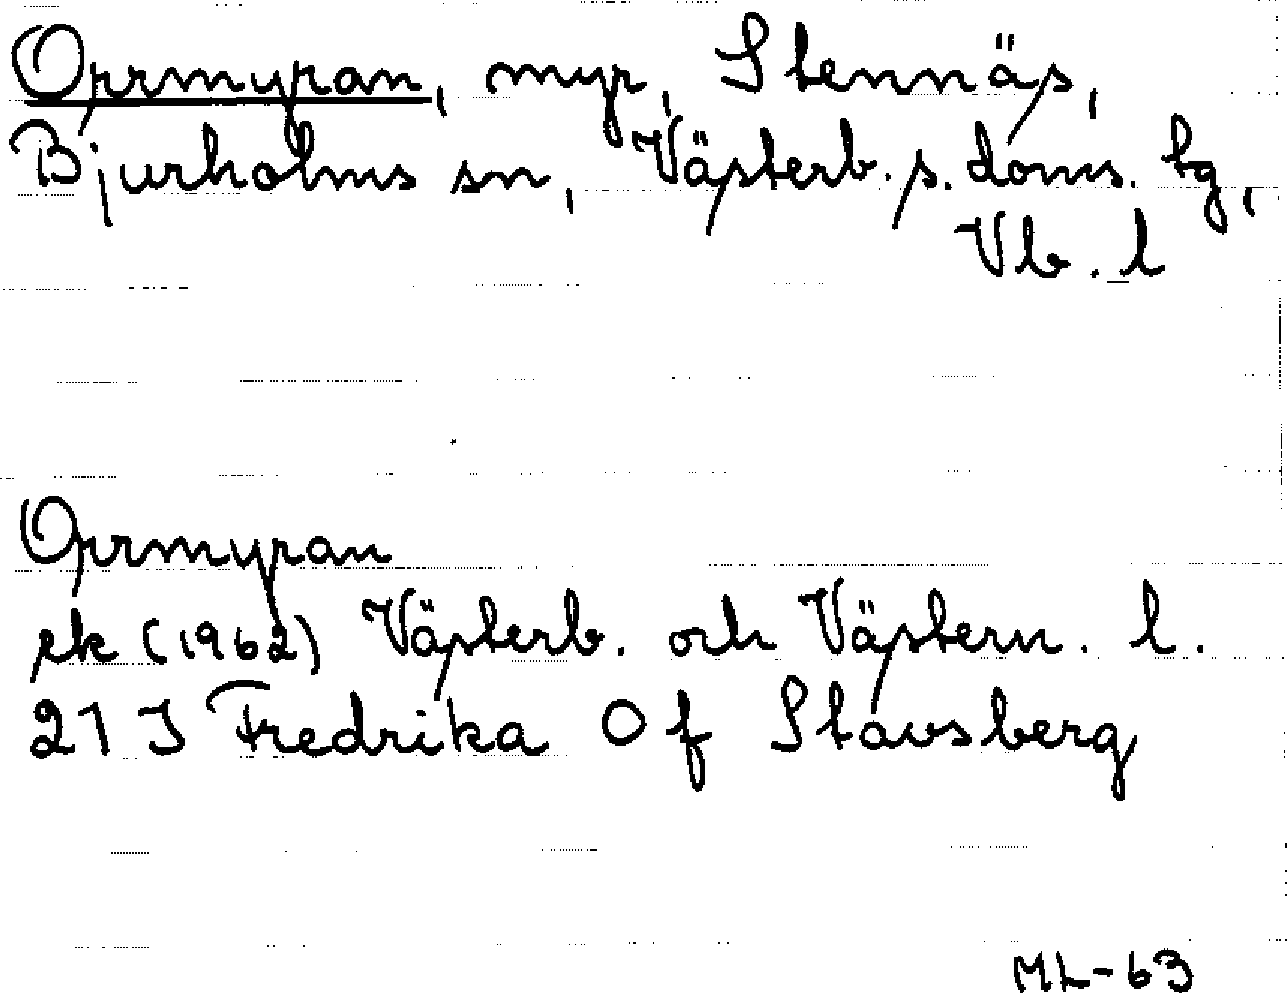 Orrmyran, myr, Stennäs,
Bjurholms sn, Västerb. s. doms. tg,
Vb. l
Orrmyran
ek (1962) Västerb. och Västern. l.
21 J Fredrika 0 f Stavsberg
ML-63